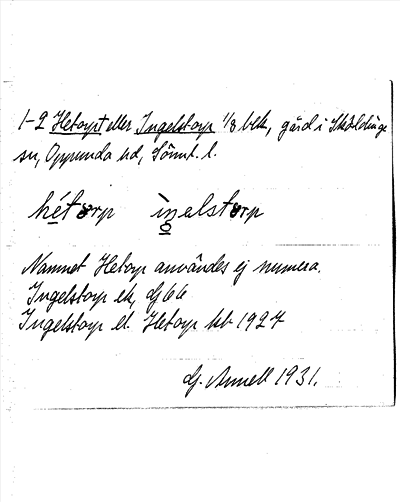 1-2 Hetorp eller Ingelstorp 1/8 blk, gård i Sköldinge
sn, Oppunda hd, Södml. l.
hétorp ìngelstorp
Namnet Hetorp användes ej numera.
Ingelstorp ek, dj 66
Ingelstorp el. Hetorp kb 1927
G. Annell 1931.